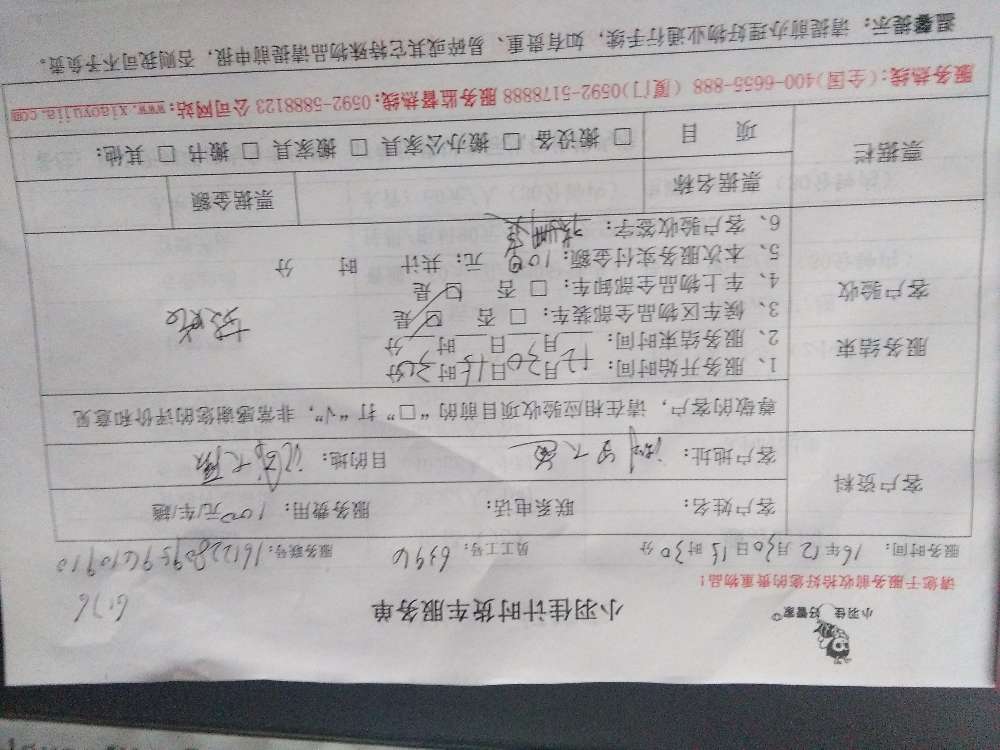 小羽佳 好管家
小羽佳计时货车服务单
6176
请您于服务前收拾好您的贵重物品！
服务时间： 16年12月30日15时30分 员工工号： 6396 服务联号：
客户资料
客户姓名： 联系电话： 服务费用： 100元/车/趟
客户地址： 目的地：
尊敬的客户，请在相应验收项目前的“□”打“√”，非常感谢您的评价和意见
服务结束
客户验收
1、服务开始时间： 12月30日15时30分
2、服务结束时间： 月 日 时 分
3、候车区物品全部装车： □ 否 □ 是
4、车上物品全部卸车： □ 否 □ 是
5、本次服务实付金额： 100 元；共计 时 分
6、客户验收签字：
票据栏
票据名称 票据金额
项 目 □ 搬设备 □ 搬办公家具 □ 搬家具 □ 搬书 □ 其他：
服务热线：(全国)400-6655-888 (厦门)0592-5178888 服务监督热线：0592-5888123 公司网站：www.xiaoyujia.com
温馨提示：请提前办理好物业通行手续，如有贵重、易碎或其它特殊物品请提前申报，否则我司不予负责。